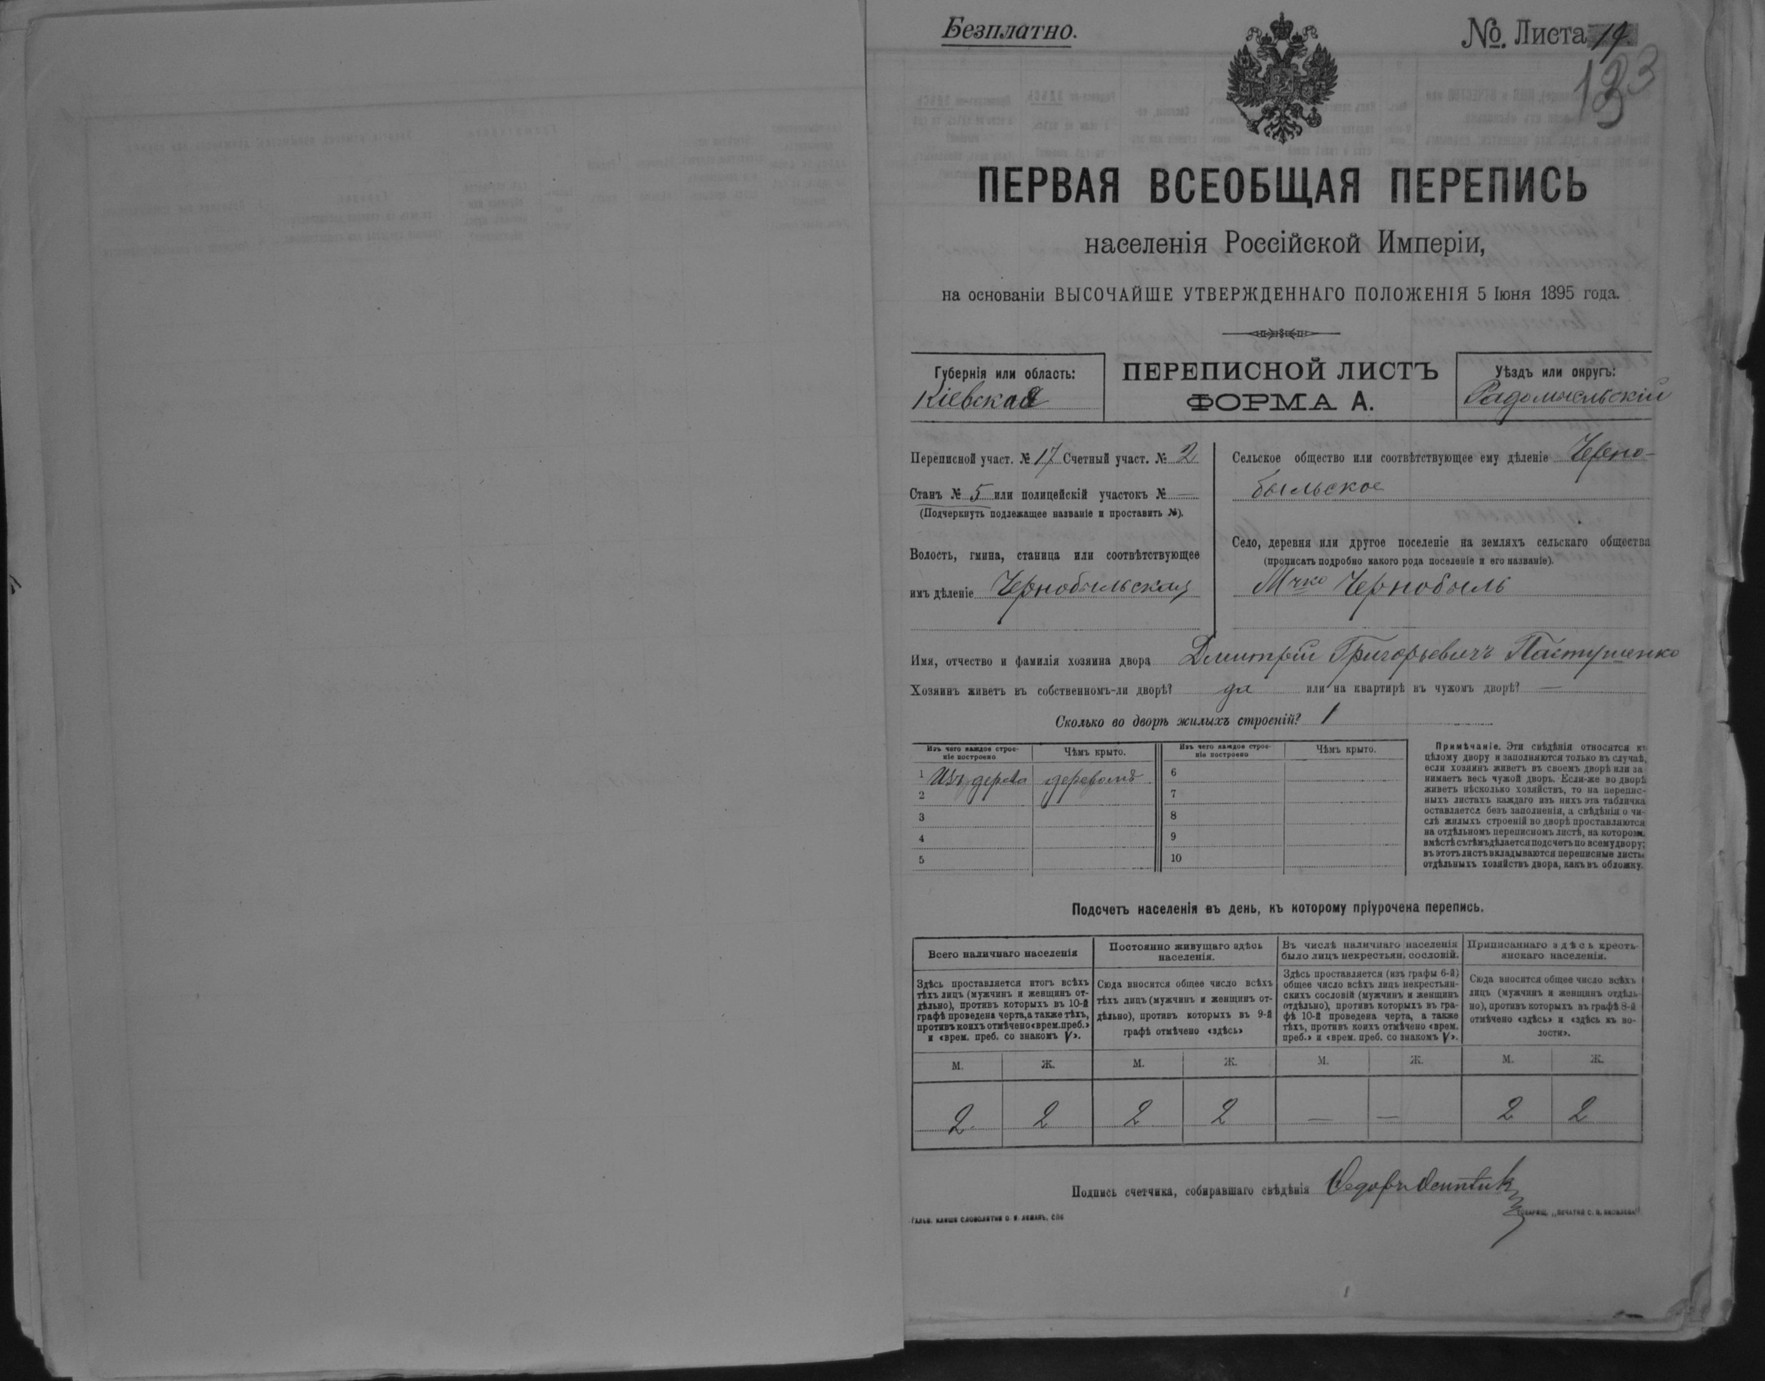 Безплатно.
№ Листа 19.
133
ПЕРВАЯ ВСЕОБЩАЯ ПЕРЕПИСЬ
населенія Россійской Имперіи,
на основаніи ВЫСОЧАЙШЕ УТВЕРЖДЕННАГО ПОЛОЖЕНІЯ 5 Іюня 1895 года.
Губернія или область:
Кіевская
ПЕРЕПИСНОЙ ЛИСТЪ
ФОРМА А.
Уѣздъ или округъ:
Радомысльскій
Переписной участ. № 17 Счетный участ. № 2
Станъ № 5 или полицейскій участокъ № —
(Подчеркнуть подлежащее названіе и проставить №).
Волость, гмина, станица или соотвѣтствующее
имъ дѣленіе Чернобыльская
Сельское общество или соотвѣтствующее ему дѣленіе Черно-
быльское
Село, деревня или другое поселеніе на земляхъ сельскаго общества
(прописать подробно какого рода поселеніе и его названіе).
Мчко Чернобыль
Имя, отчество и фамилія хозяина двора Дмитрій Григорьевичъ Пастушенко
Хозяинъ живетъ въ собственномъ-ли дворѣ? да или на квартирѣ въ чужомъ дворѣ? —
Сколько во дворѣ жилыхъ строеній? 1
Изъ чего каждое строе-
ніе построено
Чѣмъ крыто.
1 Изъ дерева деревомъ
2
3
4
5
Изъ чего каждое строе-
ніе построено
Чѣмъ крыто.
6
7
8
9
10
Примѣчаніе. Эти свѣдѣнія относятся къ
цѣлому двору и заполняются только въ случаѣ,
если хозяинъ живетъ въ своемъ дворѣ или за-
нимаетъ весь чужой дворъ. Если-же во дворѣ
живетъ нѣсколько хозяйствъ, то на перепис-
ныхъ листахъ каждаго изъ нихъ эта табличка
оставляется безъ заполненія, а свѣдѣнія о чи-
слѣ жилыхъ строеній во дворѣ проставляются
на отдѣльномъ переписномъ листѣ, на которомъ
вмѣстѣ съ тѣмъ дѣлается подсчетъ по всему двору;
въ этотъ листъ вкладываются переписные листы
отдѣльныхъ хозяйствъ двора, какъ въ обложку.
Подсчетъ населенія въ день, къ которому пріурочена перепись.
Всего наличнаго населенія
Здѣсь проставляется итогъ всѣхъ
тѣхъ лицъ (мужчинъ и женщинъ от-
дѣльно), противъ которыхъ въ 10-й
графѣ проведена черта, а также тѣхъ,
противъ коихъ отмѣчено «врем. преб.»
и «врем. преб. со знакомъ V».
Постоянно живущаго здѣсь
населенія.
Сюда вносится общее число всѣхъ
тѣхъ лицъ (мужчинъ и женщинъ от-
дѣльно), противъ которыхъ въ 9-й
графѣ отмѣчено «здѣсь»
Въ числѣ наличнаго населенія
было лицъ некрестьян. сословій.
Здѣсь проставляется (изъ графы 6-й)
общее число всѣхъ лицъ некрестьян-
скихъ сословій (мужчинъ и женщинъ
отдѣльно), противъ которыхъ въ гра-
фѣ 10-й проведена черта, а также
тѣхъ, противъ коихъ отмѣчено «врем.
преб.» и «врем. преб. со знакомъ V».
Приписаннаго здѣсь кресть-
янскаго населенія.
Сюда вносится общее число всѣхъ
лицъ (мужчинъ и женщинъ отдѣль-
но), противъ которыхъ въ графѣ 8-й
отмѣчено «здѣсь» и «здѣсь къ во-
лости».
М. Ж. М. Ж. М. Ж. М. Ж.
2 2 2 2 — — 2 2
Подпись счетчика, собиравшаго свѣдѣнія Ѳедоръ